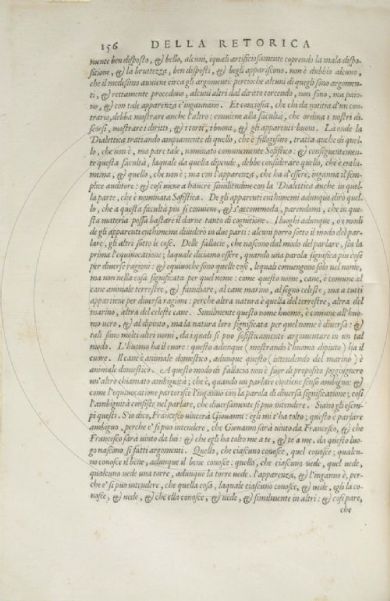 156 DELLA RETORICA
mente ben disposto, & bello, alcuni, i quali artificiosamente coprendo la mala dispo-
sitione, & la bruttezza, ben disposti, & begli appariscono. non è dubbio alcuno,
che il medesimo aviene circa gli argomenti: percioche alcuni di quegli sono argomen-
ti, & rettamente procedono, alcuni altri dal diritto torcendo, non sono, ma pare-
tio, & con tale apparenza c'ingannano. Et conciosia, che chi da notitia d'un con-
trario, debba mostrare anche l'altro: conviene alla facultà, che ordina i nostri di-
scorsi, mostrare i diritti, & i torti, i buoni, & gli apparenti buoni. La onde la
Dialettica trattando ampiamente di quello, che è sillogismo, tratta anche di quel-
lo, che non è, ma pare tale, nominato comunemente Sofistico. & conseguentemen-
te questa facultà, laquale da quella dipende, debbe considerare quello, che è entime-
mina, & quello, che non è; ma con l'apparenza, che ha d'essere, inganna il sem-
plice auditore: & così viene a havere similitudine con la Dialettica anche in quel-
la parte, che è nominata Sofistica. De gli apparenti enthimemi adunque diro quel-
lo, che a questa facultà piu si conviene, & s'accommoda, parendomi, che in que-
sta materia possa bastare il darne tanto di cognitione. I luoghi adunque, o i modi
de gli apparenti enthimemi dividerò in due parti: alcuni porrò sotto il modo del par-
lare, gli altri sotto le cose. Delle fallacie, che nascono dal modo del parlare, sia la
prima l'equivocatione; laquale diciamo essere, quando una parola significa piu cose
per diverse ragioni: & equivoche sono quelle cose, lequali convengono solo nel nome,
ma non nella cosa significata per quel nome: come questo nome, cane, è comune al
cane animale terrestre, & familiare, al cane marino, al segno celeste, ma a tutti
appartiene per diversa ragione: perche altra natura è quella del terrestre, altra del
marino, altra del celeste cane. Similmente questo nome huomo, è comune all'huo-
mo vero, & al dipinto, ma la natura loro significata per quel nome è diversa: &
tali sono molti altri nomi, da i quali si puo sofisticamente argomentare in un tal
modo. L'huomo ha il cuore: questo adunque (mostrando l'huomo dipinto) ha il
cuore. Il cane è animale domestico, adunque questo (intendendo del marino) è
animale domestico. A questo modo di fallacia non è fuor di proposito soggiognere
un'altro chiamato ambiguità; che è, quando un parlare contiene senso ambiguo: &
come l'equivocatione partorisce l'inganno con la parola di diversa significatione; così
l'ambiguità consiste nel parlare, che diversamente si puo intendere. Siano gli esem-
pi questi. S'io dico, Francesco vincerà Giovanni: egli mi è ha tolto; questo è parlare
ambiguo, perche e' si puo intendere, che Giovanni sarà vinto da Francesco, & che
Francesco sarà vinto da lui: & che egli ha tolto me a te, & te a me. da questo luo-
go nascono sì fatti argomenti. Quello, che ciascuno conosce, quel conosce; qualcu-
no conosce il bene, adunque il bene conosce: quello, che ciascuno vede, quel vede,
qualcuno vede una torre, adunque la torre vede. l'apparenza, & l'inganno è, per-
che e' si puo intendere, che quella cosa, laquale ciascuno conosce, & vede, essa co-
nosce, & vede, & che essa conosce, & vede, & similmente in altri: & così pare,
che